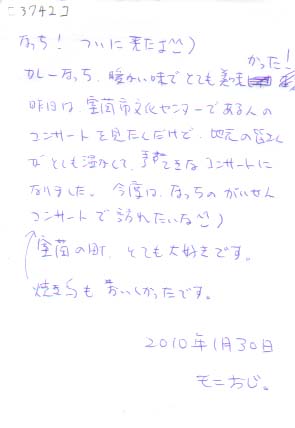 [3742]
なっち！ついに来たよ^^)
カレーなっち、暖かい味でとても美味
かった！
昨日は、室蘭市文化センターである人の
コンサートを見たんだけど、地元の皆さん
がとても温かくて、すてきなコンサートに
なりました。今度は、なっちのがいせん
コンサートで訪れたいな^^)
室蘭の町、とても大好きです。
焼き鳥もおいしかったです。
2010年1月30日
モニおじ。